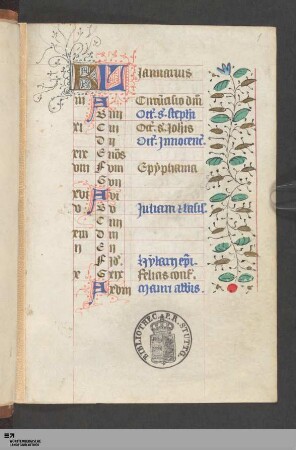 KL Januarius
iii A Circumcisio dm̄
B iiii Oct̄. s. stephi
xi C iii Oct̄. s. Joh̄is
D ii Oct̄. Innocent̄.
xix E No͞s
viii F viii Epyphania
G vii
xvi A vi
v B v Juliani
C iiii
xiii D iii
ii E ii
F Id'. Hylarii ep̄i.
x G xix Felicis conf.
A xviii Mauri abb̄is.
BIBLIOTHEC. A P. R. STUTTG.